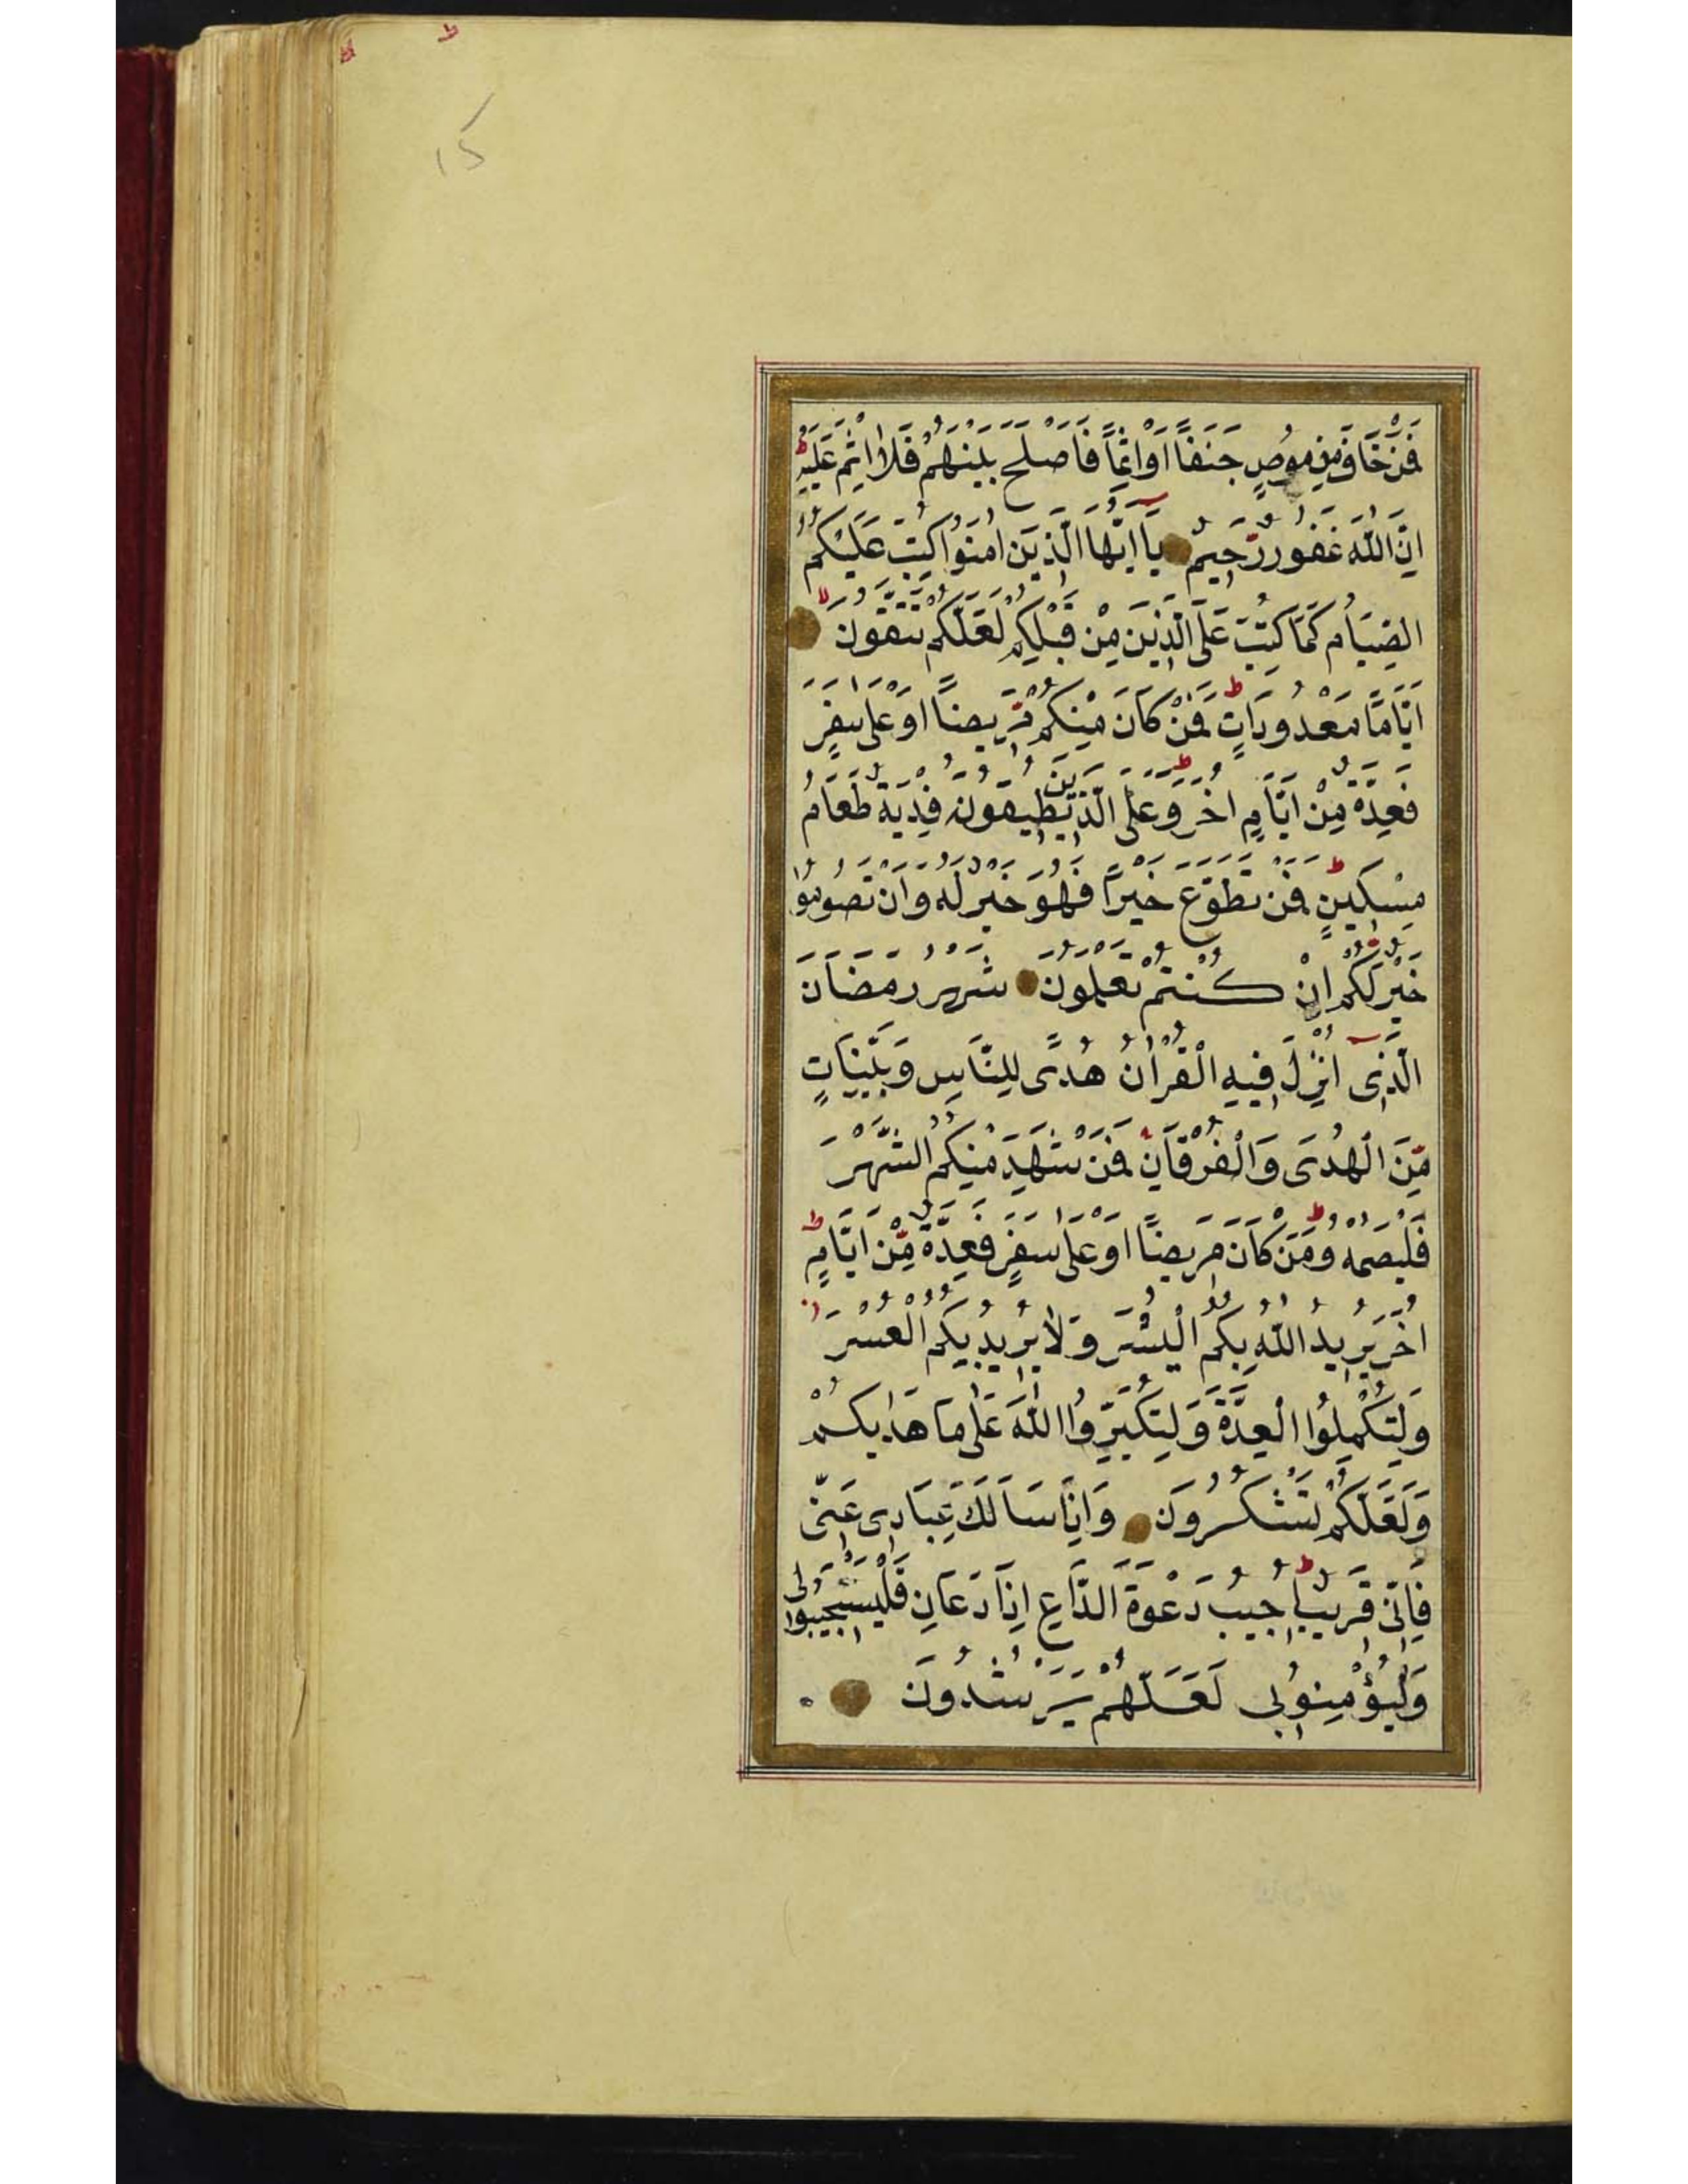 ۱۵
فَمَنْ خَافَ مِنْ مُوصٍ جَنَفًا اَوْ اِثْمًا فَاَصْلَحَ بَيْنَهُمْ فَلَا اِثْمَ عَلَيْهِ ط
اِنَّ اللّٰهَ غَفُورٌ رَّحِيمٌ يَا اَيُّهَا الَّذِينَ اٰمَنُوا كُتِبَ عَلَيْكُمُ
الصِّيَامُ كَمَا كُتِبَ عَلَى الَّذِينَ مِنْ قَبْلِكُمْ لَعَلَّكُمْ تَتَّقُونَ لا
اَيَّامًا مَعْدُودَاتٍ ط فَمَنْ كَانَ مِنْكُمْ مَّرِيضًا اَوْ عَلٰى سَفَرٍ
فَعِدَّةٌ مِنْ اَيَّامٍ اُخَرَ ط وَعَلَى الَّذِينَ يُطِيقُونَهُ فِدْيَةٌ طَعَامُ
مِسْكِينٍ ط فَمَنْ تَطَوَّعَ خَيْرًا فَهُوَ خَيْرٌ لَهُ وَاَنْ تَصُومُوا
خَيْرٌ لَّكُمْ اِنْ كُنْتُمْ تَعْلَمُونَ شَهْرُ رَمَضَانَ
الَّذِى اُنْزِلَ فِيهِ الْقُرْاٰنُ هُدًى لِلنَّاسِ وَبَيِّنَاتٍ
مِّنَ الْهُدَى وَالْفُرْقَانِ فَمَنْ شَهِدَ مِنْكُمُ الشَّهْرَ
فَلْيَصُمْهُ ط وَمَنْ كَانَ مَرِيضًا اَوْ عَلٰى سَفَرٍ فَعِدَّةٌ مِّنْ اَيَّامٍ ط
اُخَرَ يُرِيدُ اللّٰهُ بِكُمُ الْيُسْرَ وَلَا يُرِيدُ بِكُمُ الْعُسْرَ
وَلِتُكْمِلُوا الْعِدَّةَ وَلِتُكَبِّرُوا اللّٰهَ عَلٰى مَا هَدٰيكُمْ
وَلَعَلَّكُمْ تَشْكُرُونَ وَاِذَا سَاَلَكَ عِبَادِى عَنّى
فَاِنّى قَرِيبٌ ط اُجِيبُ دَعْوَةَ الدَّاعِ اِذَا دَعَانِ فَلْيَسْتَجِيبُوا لى
وَلْيُؤْمِنُوا بى لَعَلَّهُمْ يَرْشُدُونَ